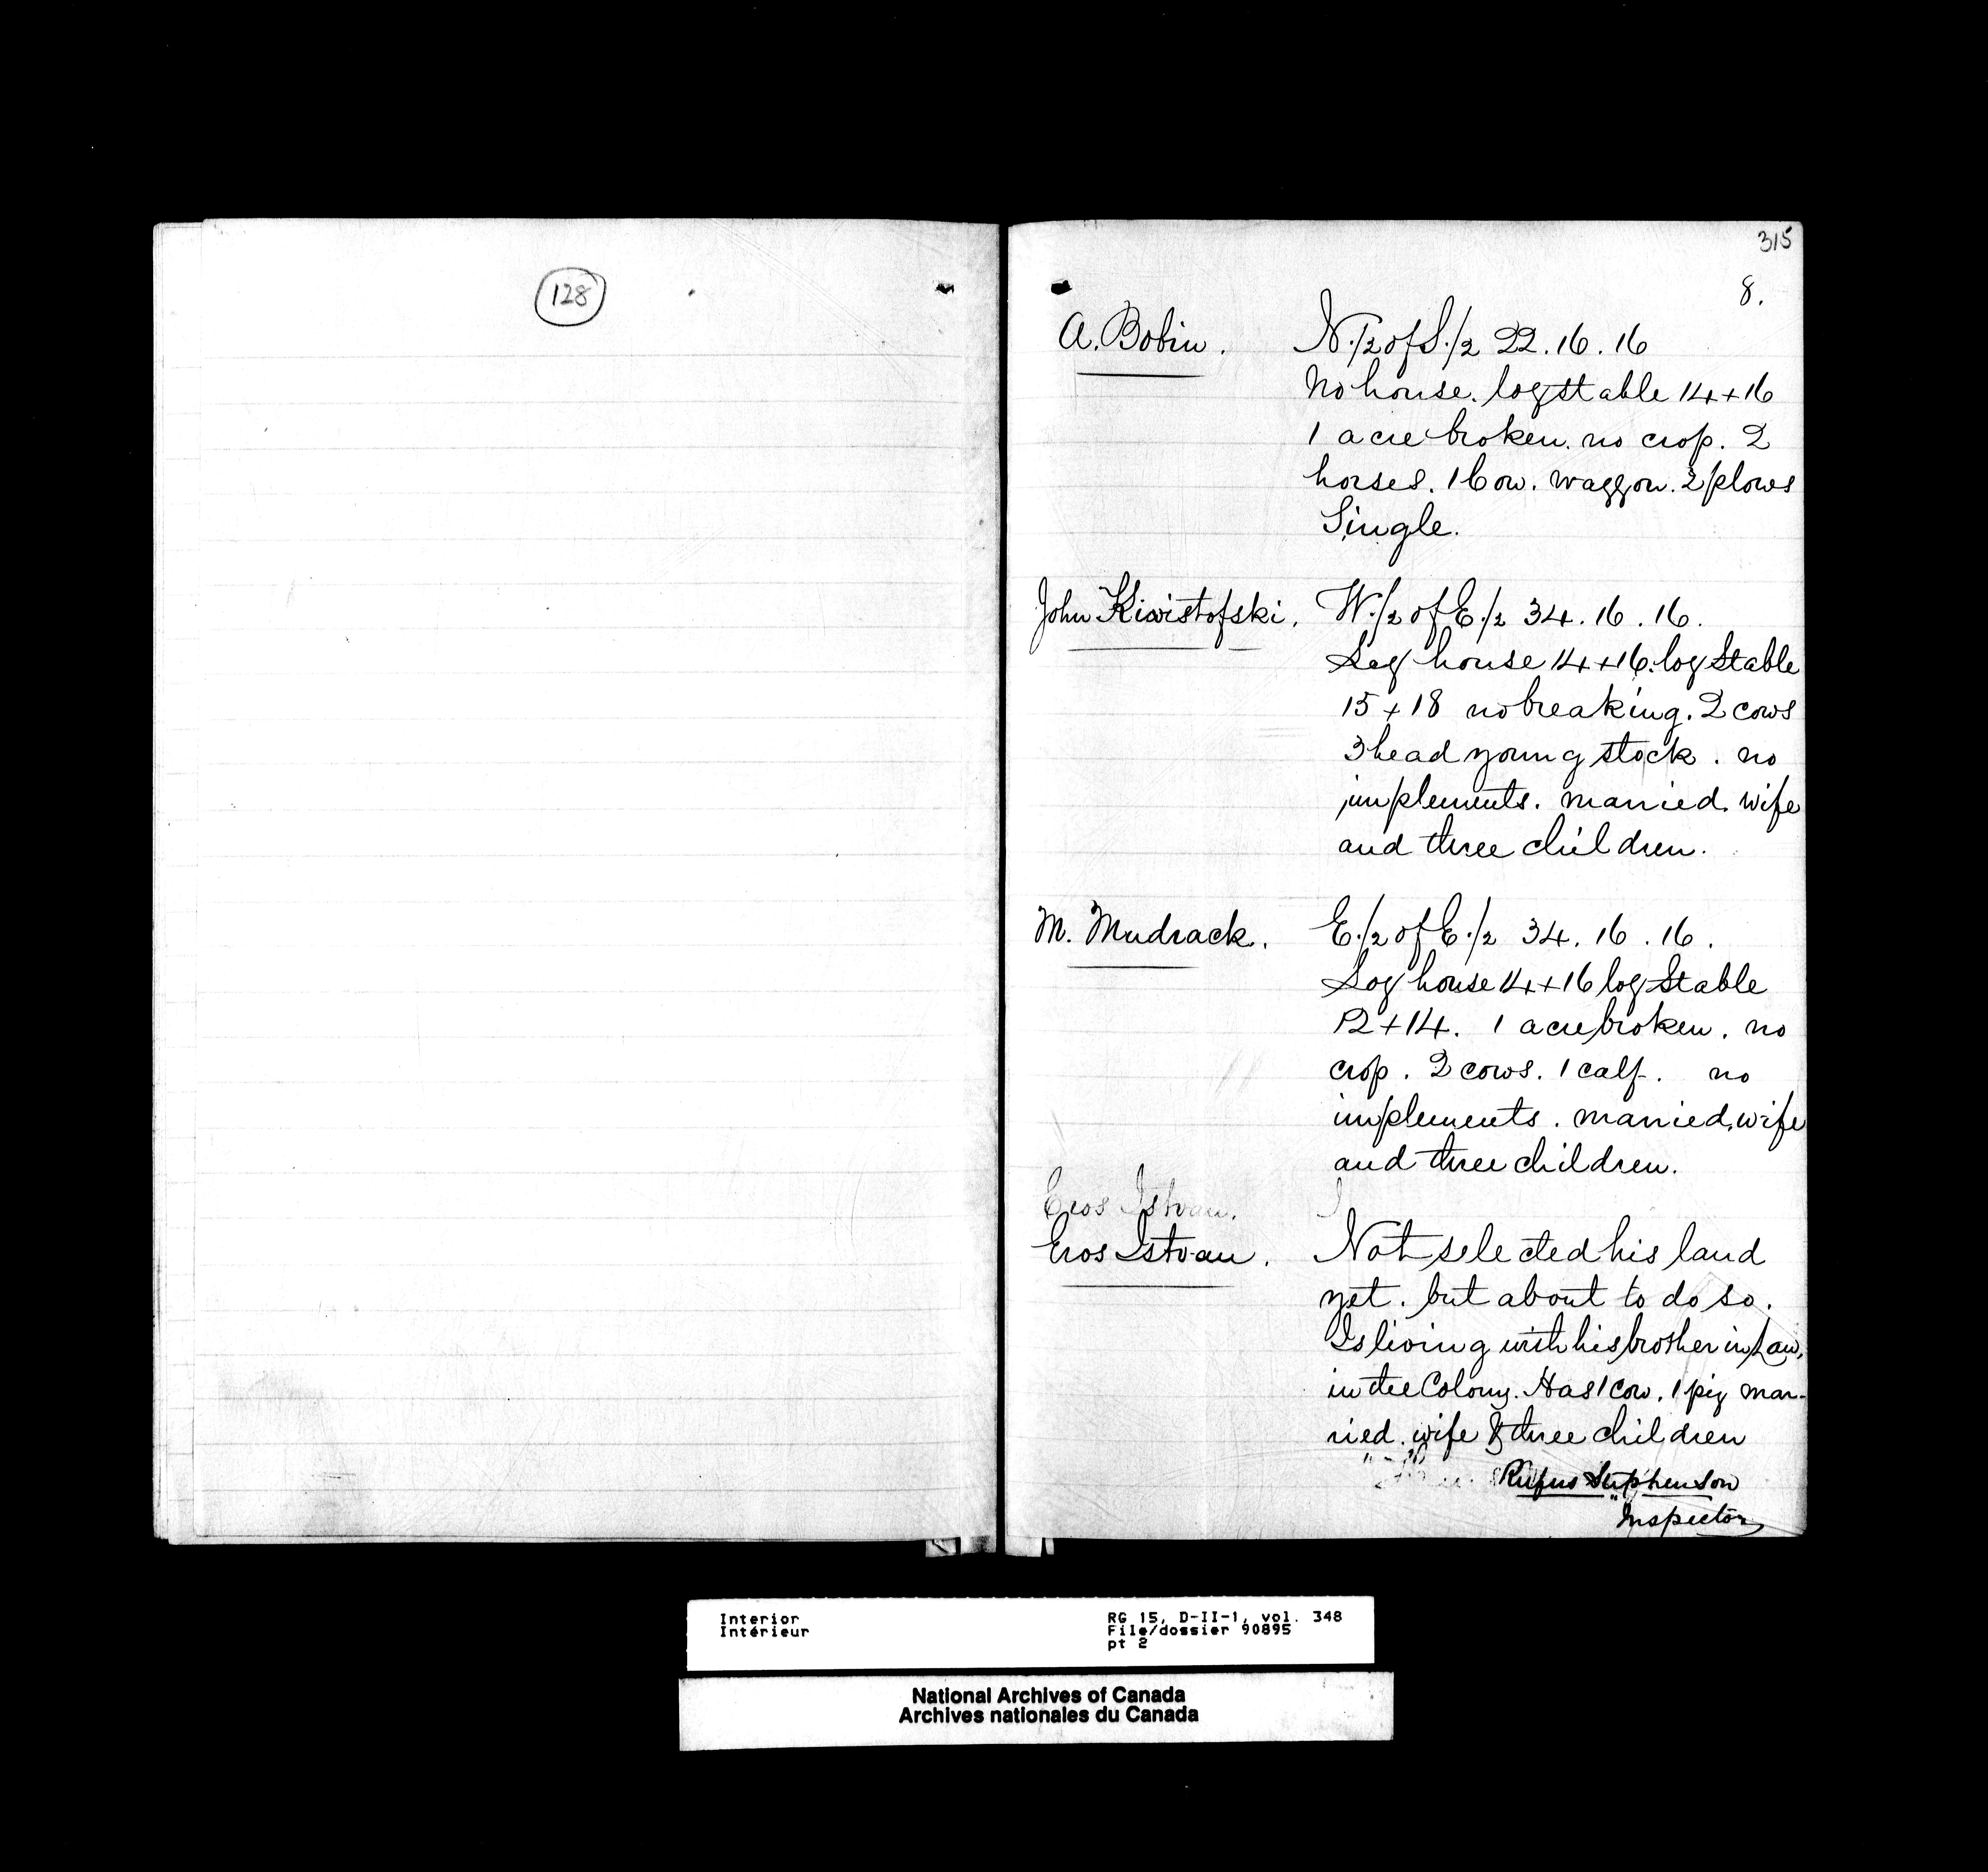 128
315
8.
A. Bobin. N. 1/2 of S. 1/2 22. 16. 16
No house. log stable 14 + 16
1 acre broken. no crop. 2
horses. 1 Cow. waggon. 2 plows
Single.
John Kiwistofski. W. 1/2 of E. 1/2 34. 16. 16.
Log house 14 + 16. log Stable
15 + 18 no breaking. 2 cows
3 head young stock. no
implements. married. wife
and three children.
M. Mudrack. E. 1/2 of E. 1/2 34. 16. 16.
Log house 14 + 16 log Stable
12 + 14. 1 acre broken. no
crop. 2 cows. 1 calf. no
implements. married, wife
and three children.
Eros Istvan.
Eros Istvan. Not selected his land
yet. but about to do so.
Is living with his brother in Law,
in the Colony. Has 1 cow. 1 pig mar-
ried. wife & three children
Rufus Stephenson
Inspector
Interior RG 15, D-II-1, vol. 348
Intérieur File/dossier 90895
pt 2
National Archives of Canada
Archives nationales du Canada